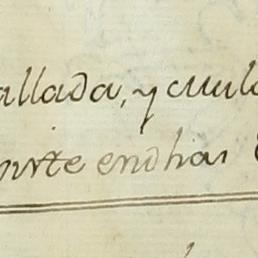 allada, y cuul
nste endhas